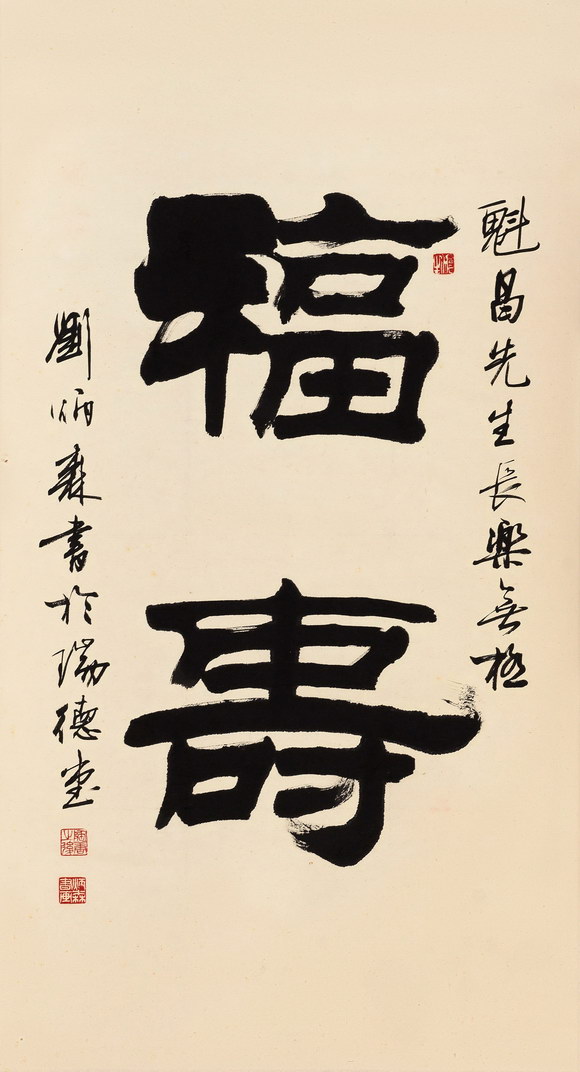 魁昌先生長樂無極
福壽
劉炳森書於瑞德堂